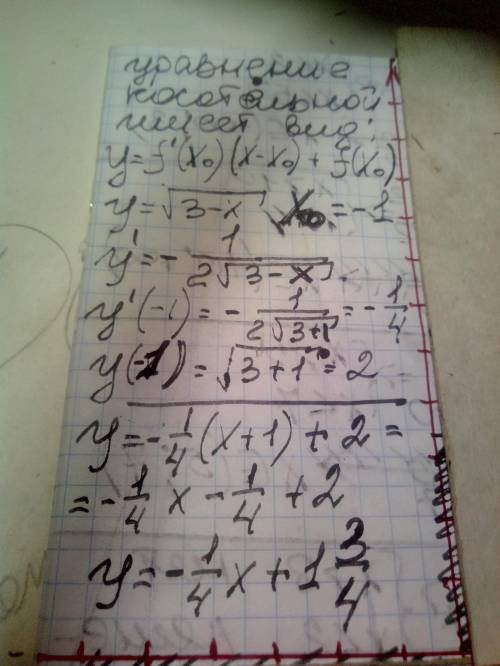 уравнение
косательной
имеет вид:
y=f'(x₀)(x-x₀)+f(x₀)
y=√(3-x) x₀=-1
y'=-1/(2√(3-x))
y'(-1)=-1/(2√(3+1))=-1/4
y(-1)=√(3+1)=2
y=-1/4(x+1)+2=
=-1/4x-1/4+2
y=-1/4x+1 3/4